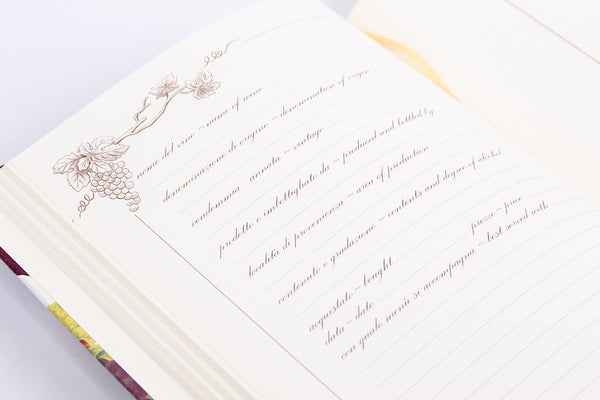 nome del vino ~ name of wine
denominazione di origine ~ denomination of origin
vendemmia annata ~ vintage
prodotto e imbottigliato da ~ produced and bottled by
località di provenienza ~ area of production
contenuto e gradazione ~ contents and degree of alcohol
acquistato ~ bought prezzo ~ price
data ~ date
con quale menù si accompagna ~ best served with